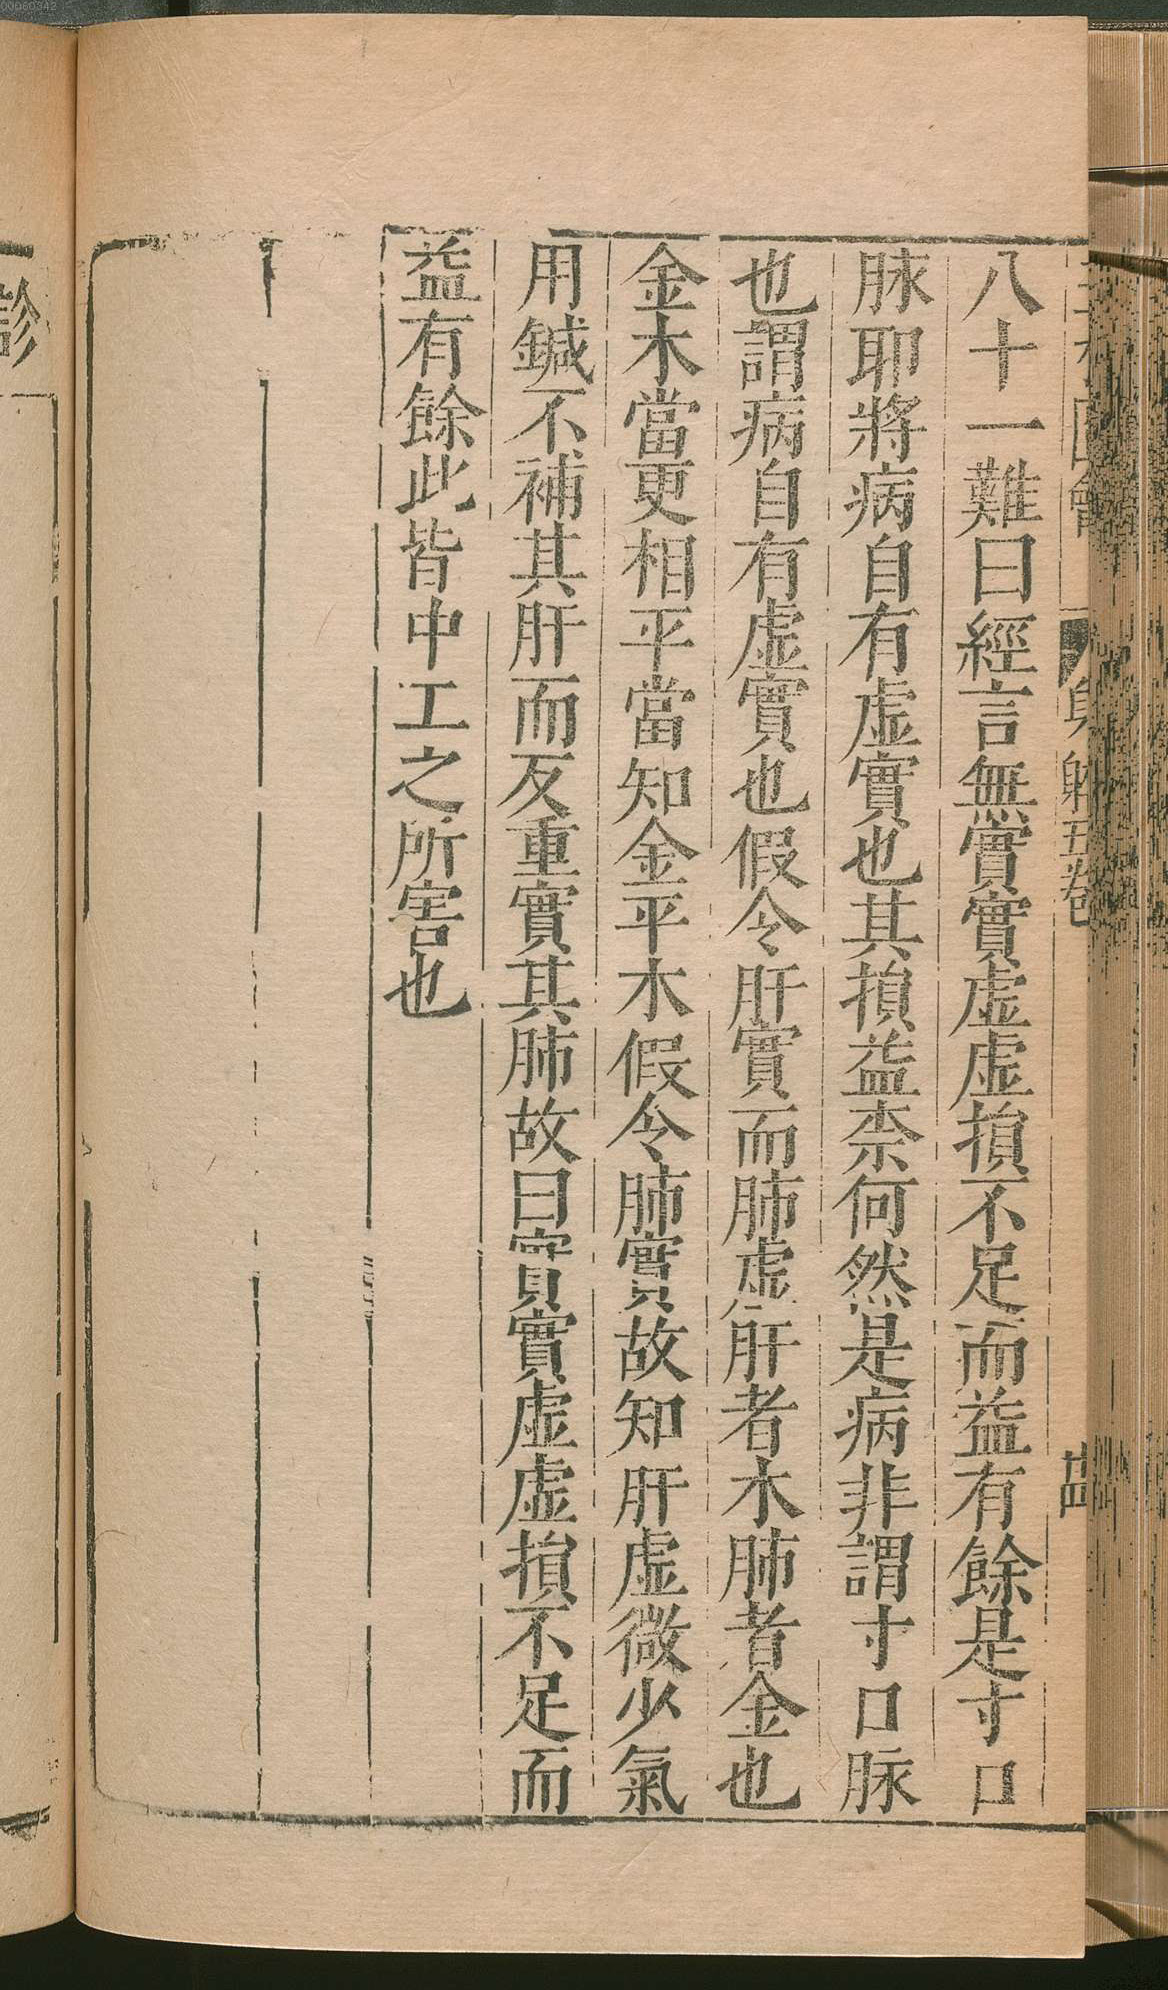 八十一難曰經言無實實虛虛損不足而益有餘是寸口
脉耶將病自有虛實也其損益柰何然是病非謂寸口脉
也謂病自有虛實也假令肝實而肺虛肝者木肺者金也
金木當更相平當知金平木假令肺實故知肝虛微少氣
用鍼不補其肝而反重實其肺故曰實實虛虛損不足而
益有餘此皆中工之所害也
身躰五卷
診
00060342